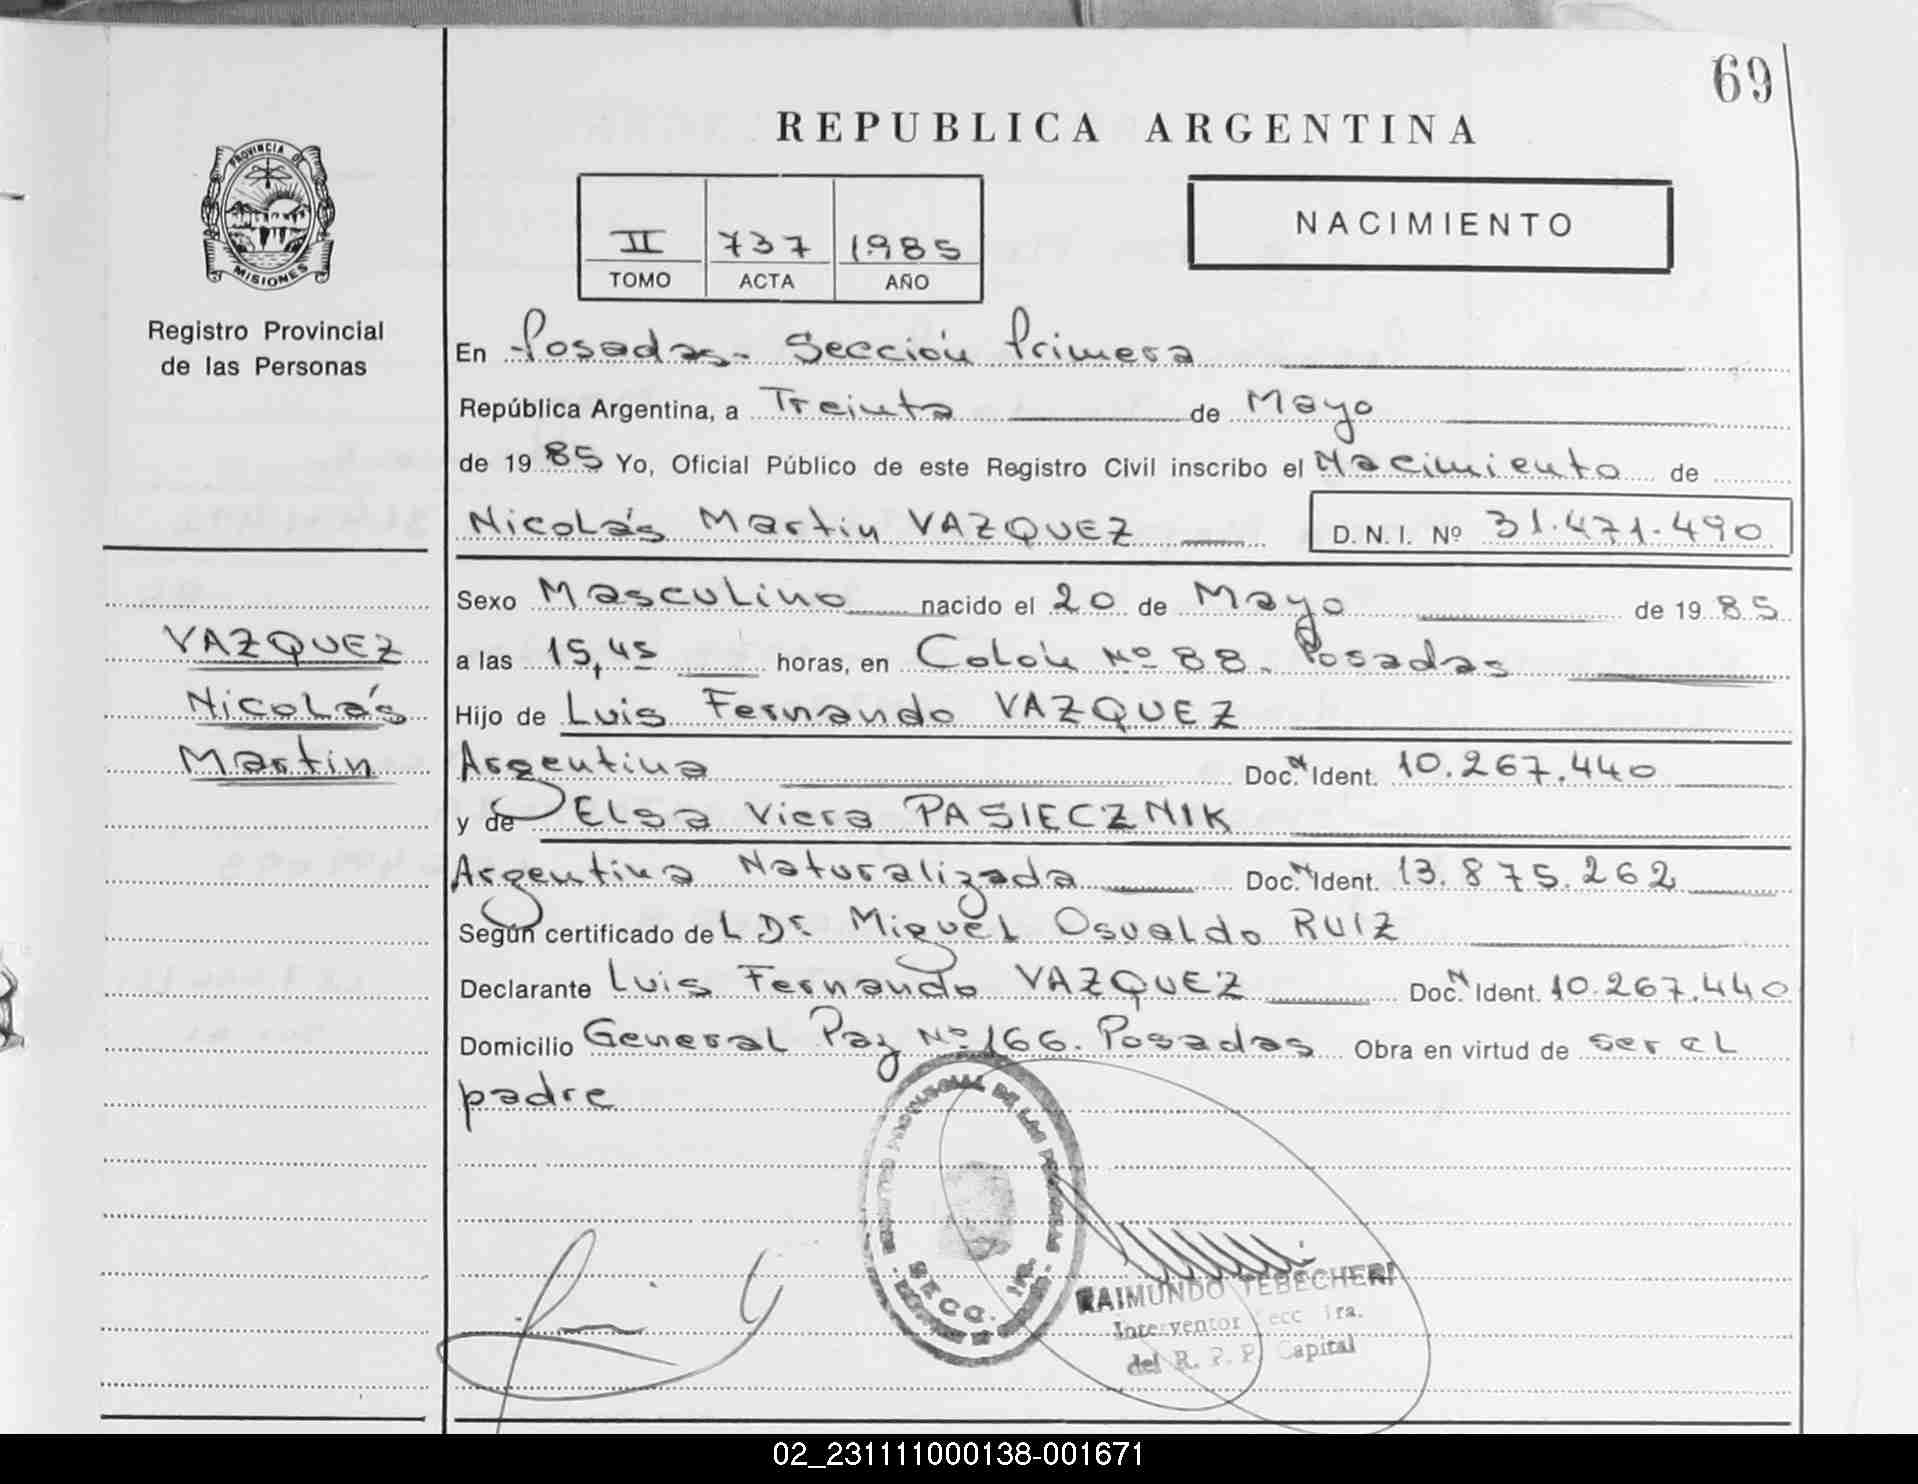 69
REPUBLICA ARGENTINA
PROVINCIA DE
MISIONES
Registro Provincial
de las Personas
II 737 1985
TOMO ACTA AÑO
NACIMIENTO
En Posadas- Sección Primera
República Argentina, a Treinta de Mayo
de 1985 Yo, Oficial Público de este Registro Civil inscribo el Nacimiento de
Nicolás Martin VAZQUEZ D.N.I. Nº 31.471.490
Sexo Masculino nacido el 20 de Mayo de 1985
VAZQUEZ
Nicolás
Martin
a las 15,45 horas, en Colón Nº 88- Posadas
Hijo de Luis Fernando VAZQUEZ
Argentina Doc. N Ident. 10.267.440
y de Elsa Viera PASIECZNIK
Argentina Naturalizada Doc. N Ident. 13.875.262
Según certificado del Dr. Miguel Osvaldo RUIZ
Declarante Luis Fernando VAZQUEZ Doc. N Ident. 10.267.440
Domicilio General Paz Nº 166. Posadas Obra en virtud de ser el
padre
PROVINCIAL DE LAS PERSONAS
SECC. 1ra.
RAIMUNDO TEBECHERI
Interventor Secc 1ra.
del R. P. P. Capital
02_231111000138-001671